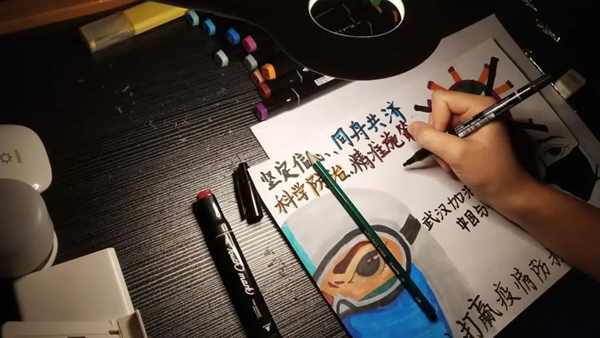 坚定信心、同舟共济
科学防治、精准施策
武汉加油
中国
打赢疫情防
mark